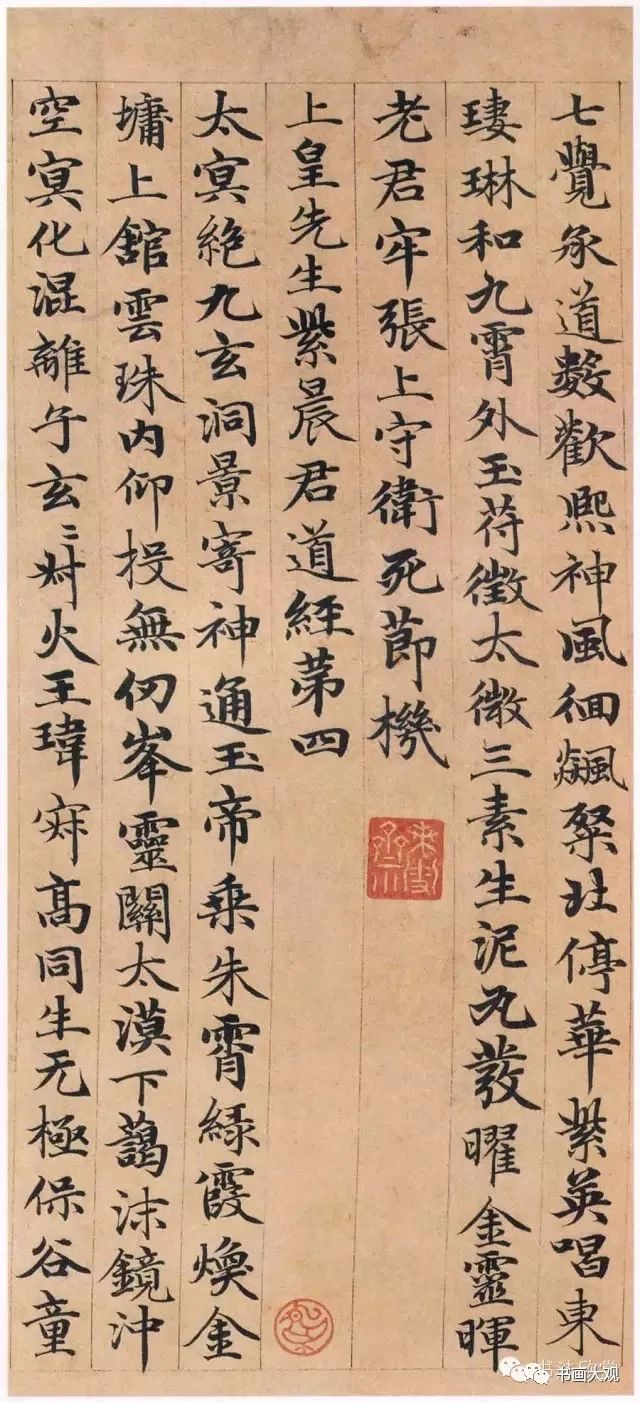 七覺承道數歡熙神風徊飆粲壯停華紫英唱東
瓊琳和九霄外玉苻徵太微三素生泥丸發曜金靈暉
老君牢張上守衛死節機
上皇先生紫晨君道經苐四
太㝠絶九玄洞景寄神通玉帝乗朱霄緑霞煥金
墉上舘雲珠内仰投無刃峯靈關太漠下藹沫鏡沖
空㝠化混離子玄〻對火王瑋寂髙同生无極保谷童
书画大观